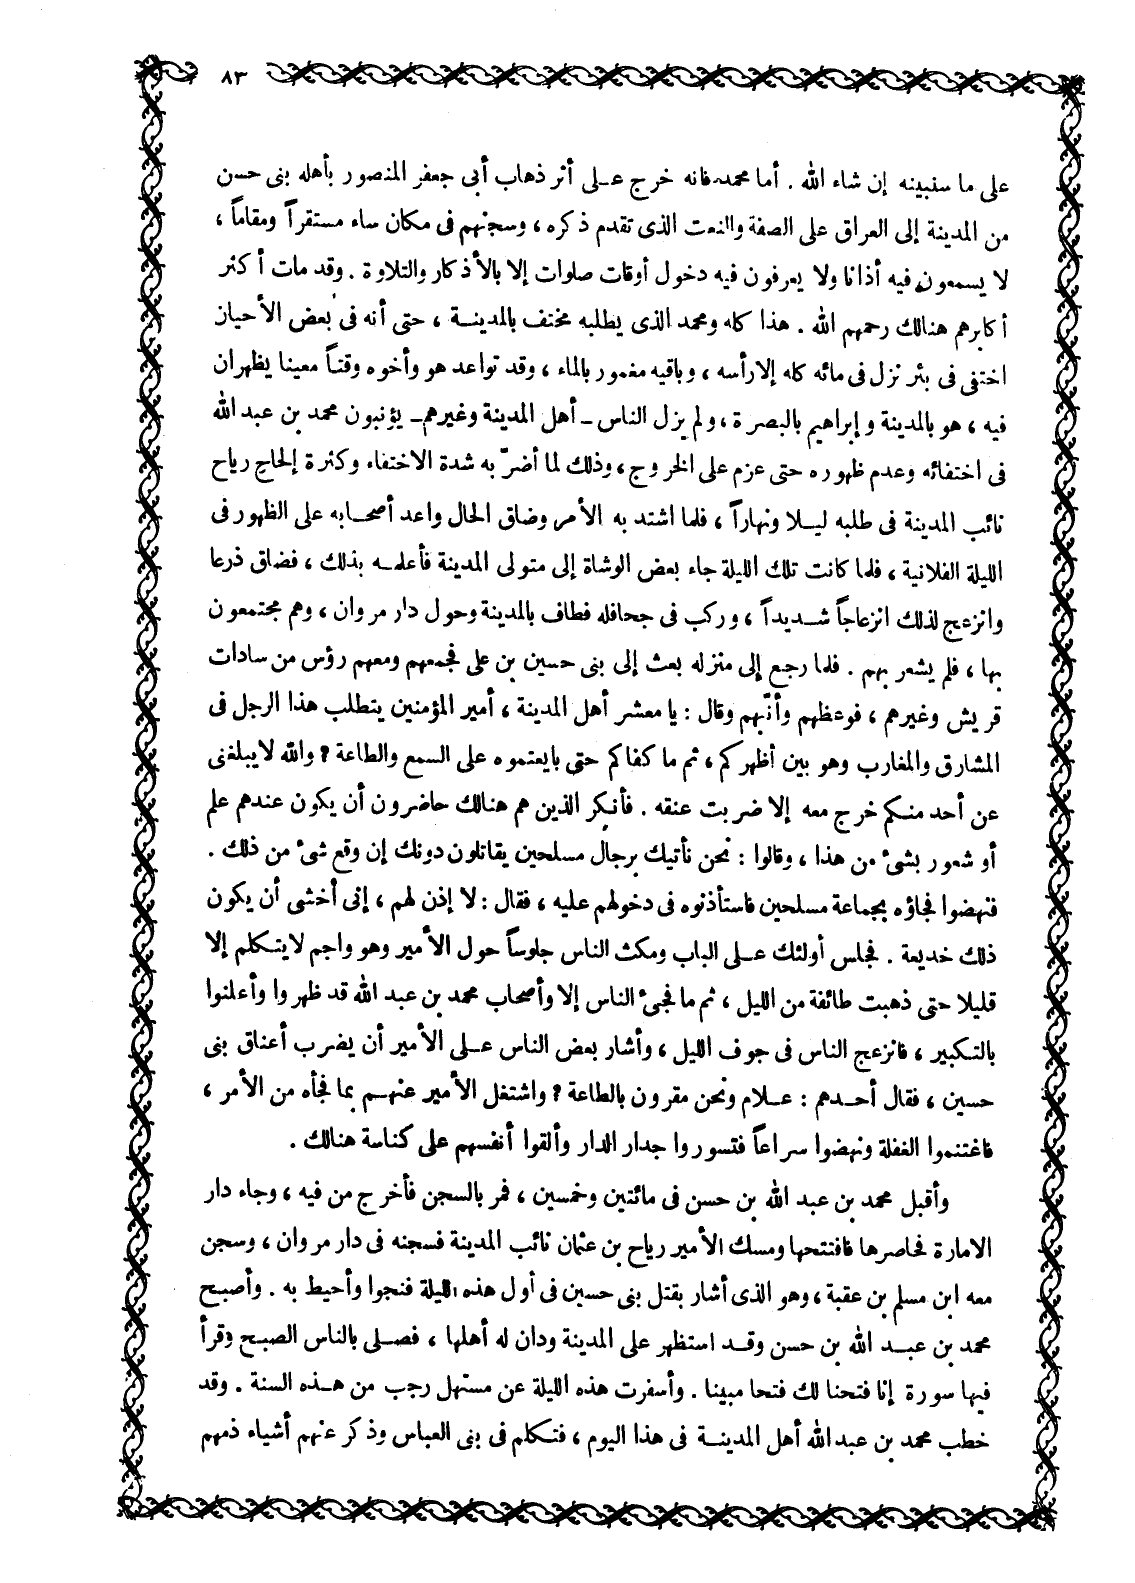 ٨٣
على ما سنبينه إن شاء الله . أما محمد فانه خرج على أثر ذهاب أبى جعفر المنصور بأهله بنى حسن
من المدينة إلى العراق على الصفة والنعت الذى تقدم ذكره ، وسجنهم فى مكان ساء مستقراً ومقاماً ،
لا يسمعون فيه أذانا ولا يعرفون فيه دخول أوقات صلوات إلا بالأذكار والتلاوة . وقد مات أكثر
أكابرهم هنالك رحمهم الله . هذا كله ومحمد الذى يطلبه مختف بالمدينة ، حتى أنه فى بعض الأحيان
اختفى فى بئر نزل فى مائه كله إلا رأسه ، وباقيه مغمور بالماء ، وقد تواعد هو وأخوه وقتاً معينا يظهران
فيه ، هو بالمدينة وإبراهيم بالبصرة ، ولم يزل الناس ـ أهل المدينة وغيرهم ـ يؤنبون محمد بن عبد الله
فى اختفائه وعدم ظهوره حتى عزم على الخروج ، وذلك لما أضرّ به شدة الاختفاء وكثرة إلحاح رياح
نائب المدينة فى طلبه ليلا ونهاراً ، فلما اشتد به الأمر وضاق الحال واعد أصحابه على الظهور فى
الليلة الفلانية ، فلما كانت تلك الليلة جاء بعض الوشاة إلى متولى المدينة فأعلمه بذلك ، فضاق ذرعا
وانزعج لذلك انزعاجاً شديداً ، وركب فى جحافله فطاف بالمدينة وحول دار مروان ، وهم مجتمعون
بها ، فلم يشعر بهم . فلما رجع إلى منزله بعث إلى بنى حسين بن على فجمعهم ومعهم رؤس من سادات
قريش وغيرهم ، فوعظهم وأنّبهم وقال : يا معشر أهل المدينة ، أمير المؤمنين يتطلب هذا الرجل فى
المشارق والمغارب وهو بين أظهركم ، ثم ما كفاكم حتى بايعتموه على السمع والطاعة ? والله لا يبلغنى
عن أحد منكم خرج معه إلا ضربت عنقه . فأنكر الذين هم هنالك حاضرون أن يكون عندهم علم
أو شعور بشئ من هذا ، وقالوا : نحن نأتيك برجال مسلحين يقاتلون دونك إن وقع شئ من ذلك .
فنهضوا فجاؤه بجماعة مسلحين فاستأذنوه فى دخولهم عليه ، فقال : لا إذن لهم ، إنى أخشى أن يكون
ذلك خديعة . فجلس أولئك على الباب ومكث الناس جلوساً حول الأمير وهو واجم لا يتكلم إلا
قليلا حتى ذهبت طائفة من الليل ، ثم ما فجئ الناس إلا وأصحاب محمد بن عبد الله قد ظهروا وأعلنوا
بالتكبير ، فانزعج الناس فى جوف الليل ، وأشار بعض الناس على الأمير أن يضرب أعناق بنى
حسين ، فقال أحدهم : علام ونحن مقرون بالطاعة ? واشتغل الأمير عنهم بما فجأه من الأمر ،
فاغتنموا الغفلة ونهضوا سراعاً فتسوروا جدار الدار وألقوا أنفسهم على كناسة هنالك .
وأقبل محمد بن عبد الله بن حسن فى مائتين وخمسين ، فمر بالسجن فأخرج من فيه ، وجاء دار
الامارة فحاصرها فافتتحها ومسك الأمير رياح بن عثمان نائب المدينة فسجنه فى دار مروان ، وسجن
معه ابن مسلم بن عقبة ، وهو الذى أشار بقتل بنى حسين فى أول هذه الليلة فنجوا وأحيط به . وأصبح
محمد بن عبد الله بن حسن وقد استظهر على المدينة ودان له أهلها ، فصلى بالناس الصبح وقرأ
فيها سورة إنا فتحنا لك فتحا مبينا . وأسفرت هذه الليلة عن مستهل رجب من هذه السنة . وقد
خطب محمد بن عبد الله أهل المدينة فى هذا اليوم ، فتكلم فى بنى العباس وذكر عنهم أشياء ذمهم